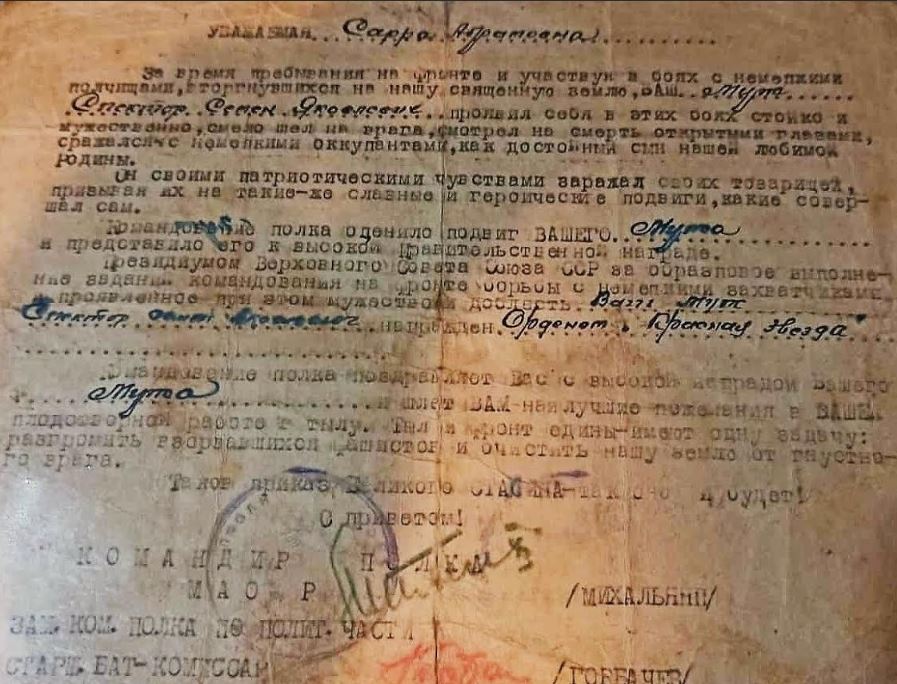 УВАЖАЕМАЯ...Сарра Абрамовна..........
За время пребывания на фронте и участвуя в боях с немецкими
полчищами, вторгнувшихся на нашу священную землю, ВАШ...Муж.....
Спектор Семен Яковлевич...проявил себя в этих боях стойко и
мужественно, смело шел на врага, смотрел на смерть открытыми глазами,
сражался с немецкими оккупантами, как достойный сын нашей любимой
Родины.
Он своими патриотическими чувствами заражал своих товарищей,
призывая их на такие-же славные и героические подвиги, какие совер-
шал сам.
Командование полка оценило подвиг ВАШЕГО...Мужа
и представило его к высокой Правительственной награде.
Президиумом Верховного Совета Союза ССР за образцовое выполне-
ние заданий командования на фронте борьбы с немецкими захватчиками
и проявленное при этом мужество и доблесть Ваш муж
Спектор Яковлевич...награжден. Орденом "Красная звезда"
Командование полка поздравляет Вас с высокой наградой Вашего
Мужа.......и шлет ВАМ наилучшие пожелания в ВАШЕЙ
плодотворной работе в тылу. Тыл и фронт едины-имеют одну задачу:
разгромить ворвавшихся фашистов и очистить нашу землю от гнусно-
го врага.
Таков приказ Великого СТАЛИНА-так оно и будет!
С приветом!
КОМАНДИР ПОЛКА
МАОР /МИХАЛЬЯНЦ/
ЗАМ. КОМ. ПОЛКА ПО ПОЛИТ. ЧАСТИ
СТАРШ. БАТ-КОМИССАР /ГОРБАЧЕВ/